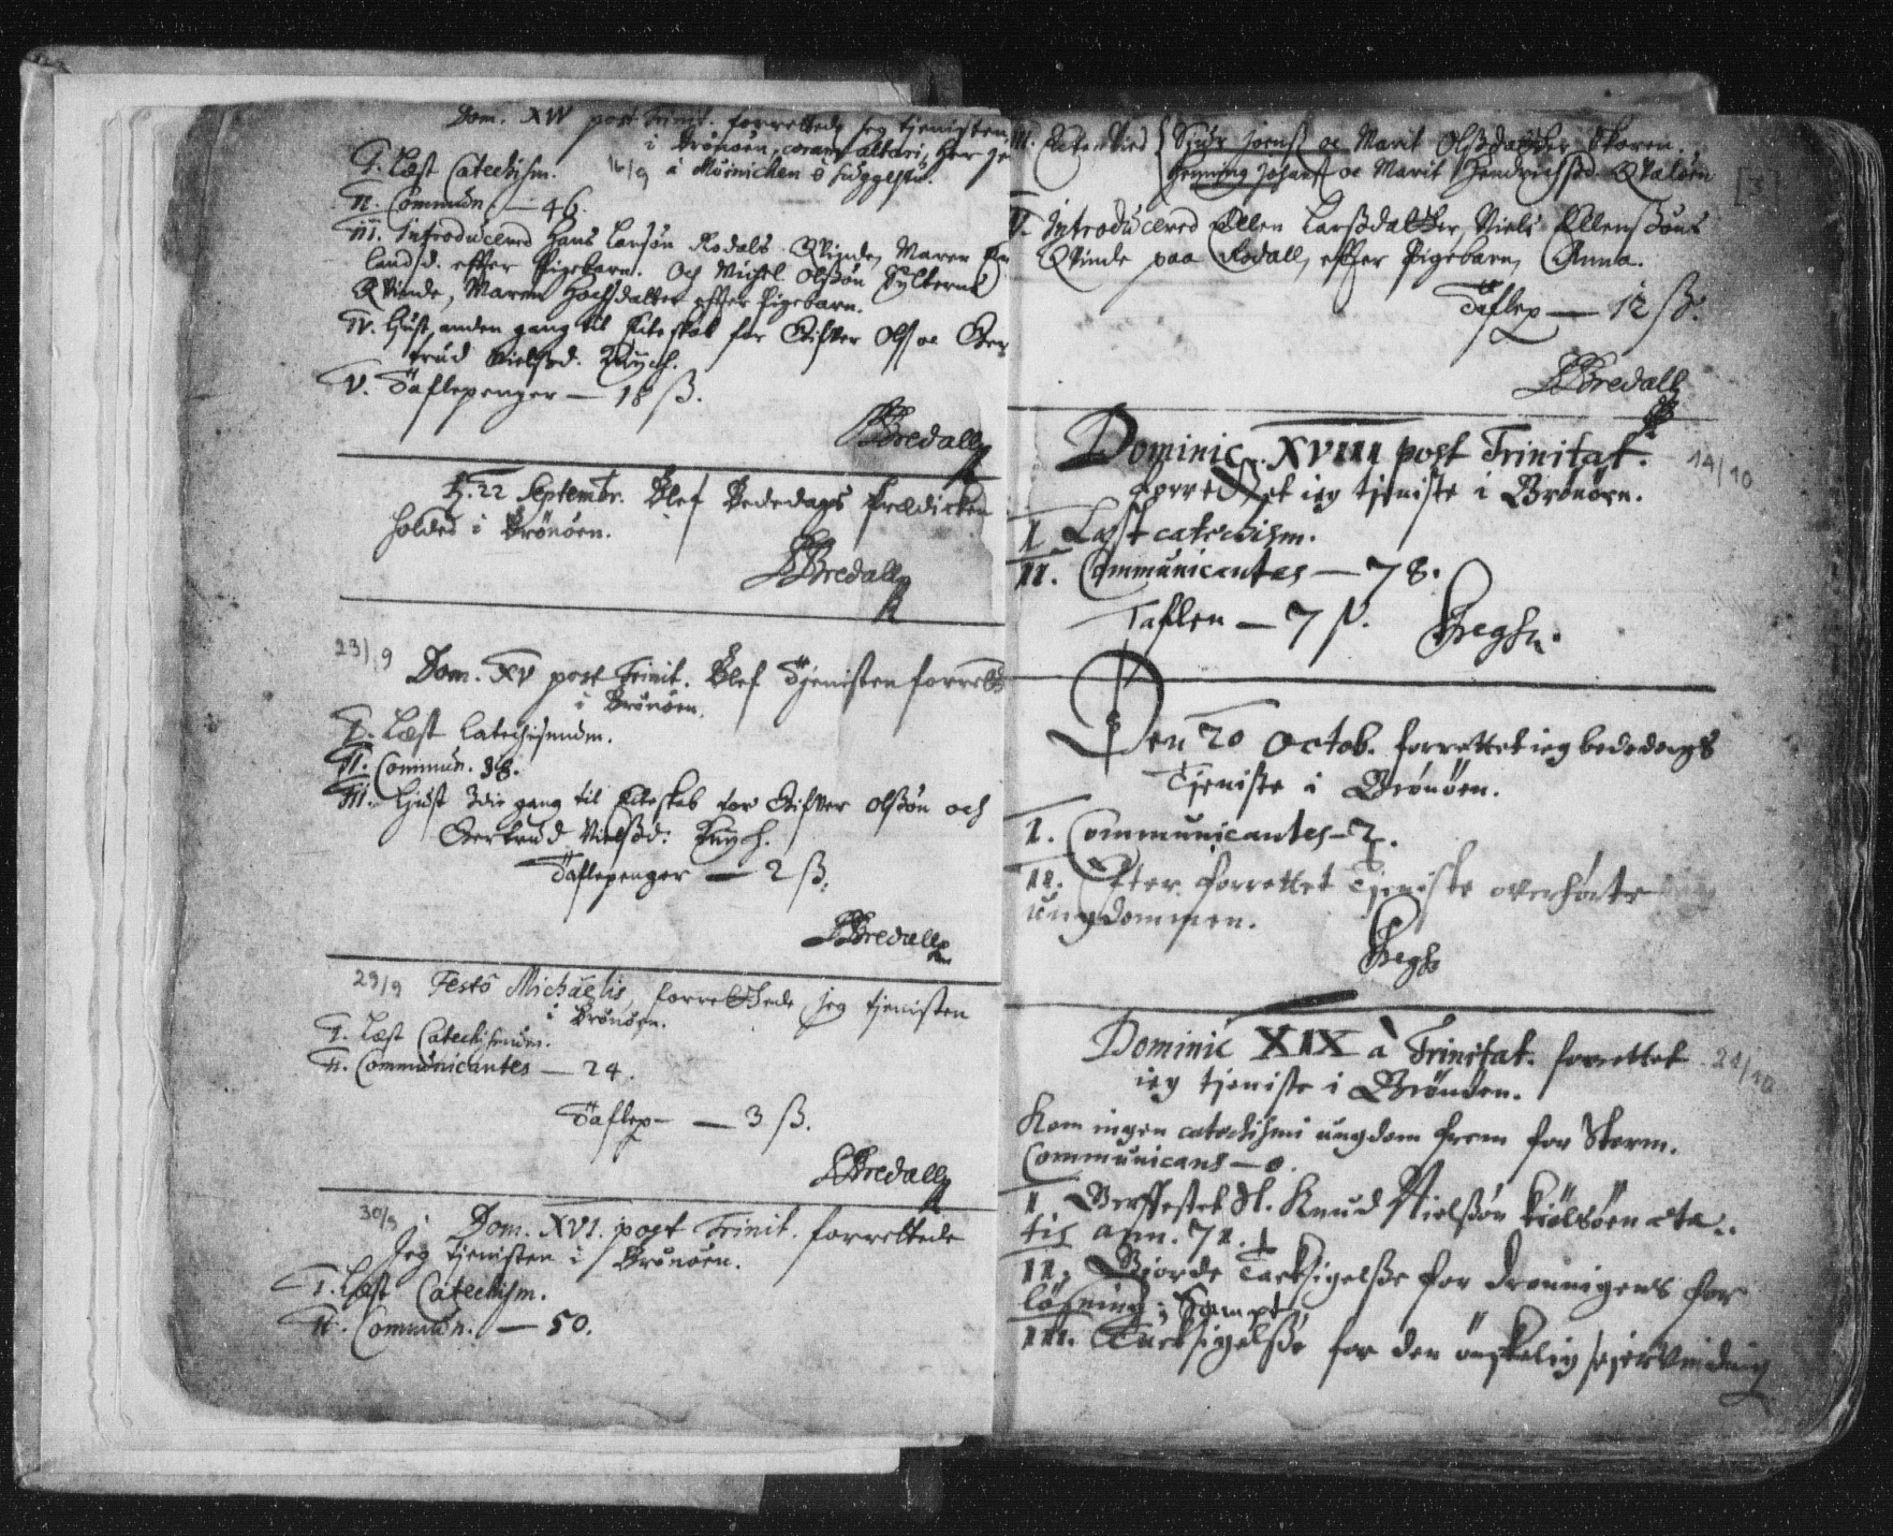 Dom. XIV post Trinit. forrettede jeg tjenisten
i Brönöen, coram altari, Her Je
I. Læst Catechism. 16/9 à Müinichen è suggestu.
II. Commun. — 46.
III. Introducered Hans Larsøn Rodals Qvinde, Maren
landsd. effter Pigebarn. Och Michel Olssøn Sylternes
Qvinde, Maren effter Pigebarn.
IV. Liust anden gang til Ecteskab for Sifver Ols: oc Ger
trud Nielsd.
V. Taflepenger — 18 ß.
Bredall
D. 22 Septembr. Blef Bededags Prædicken
holden i Brönöen.
Bredall
23/9 Dom. XV post Trinit. Blef Tjenisten forrett
i Brönöen.
I. Læst Catechismum.
II. Commun. 38.
III. Liust 3die gang til Ecteskab for Sifver Olssøn och
Gertrud Nielsd:
Taflepenger — 2 ß.
Bredall
29/9 Festo Michaelis, forrettede jeg tjenisten
i Brönöen.
I. Læst Catechismum.
II. Communicantes — 24.
Taflep — 3 ß.
Bredall
30/9 Dom. XVI. post Trinit. forrettede
Jeg tjenisten i Brönöen.
I. Læst Catechism.
II. Commun. — 50.
Ecte Vied Siur Joens: oc Marit Olsdatter Skaren.
Henning Johans: oc Marit Hendrichsd. Qvaløen [3]
V. Introducered Ellen Larsdatter, Niels Ellenssøns
Qvinde paa Rodall, effter Pigebarn, Anna.
Taflep — 12 ß.
Bredall
Dominic. XVIII post Trinitat. 14/10
forrettet ieg tjeniste i Brönöen.
I Læst catechism.
II. Communicantes — 78.
Taflen — 7 ß.
Den 20 Octob. forrettet ieg bededags
Tjeniste i Brönöen.
I. Communicantes — 2.
II. Efter forrettet Tjeniste overhørte
ungdommen.
Dominic XIX à Trinitat. forrettet 21/10
ieg tjeniste i Brönöen.
Kom ingen catechismi ungdom frem for Storm.
Communicans — 0.
I. Berffestet Sl. Knud Nielssøn Kiølsøen æta..
tis ann. 72. †
II. Giorde Tacksigelsse for Dronnigens for
løsning; Sampt
III. Tacksigelsse for den ønskelig sejervinding